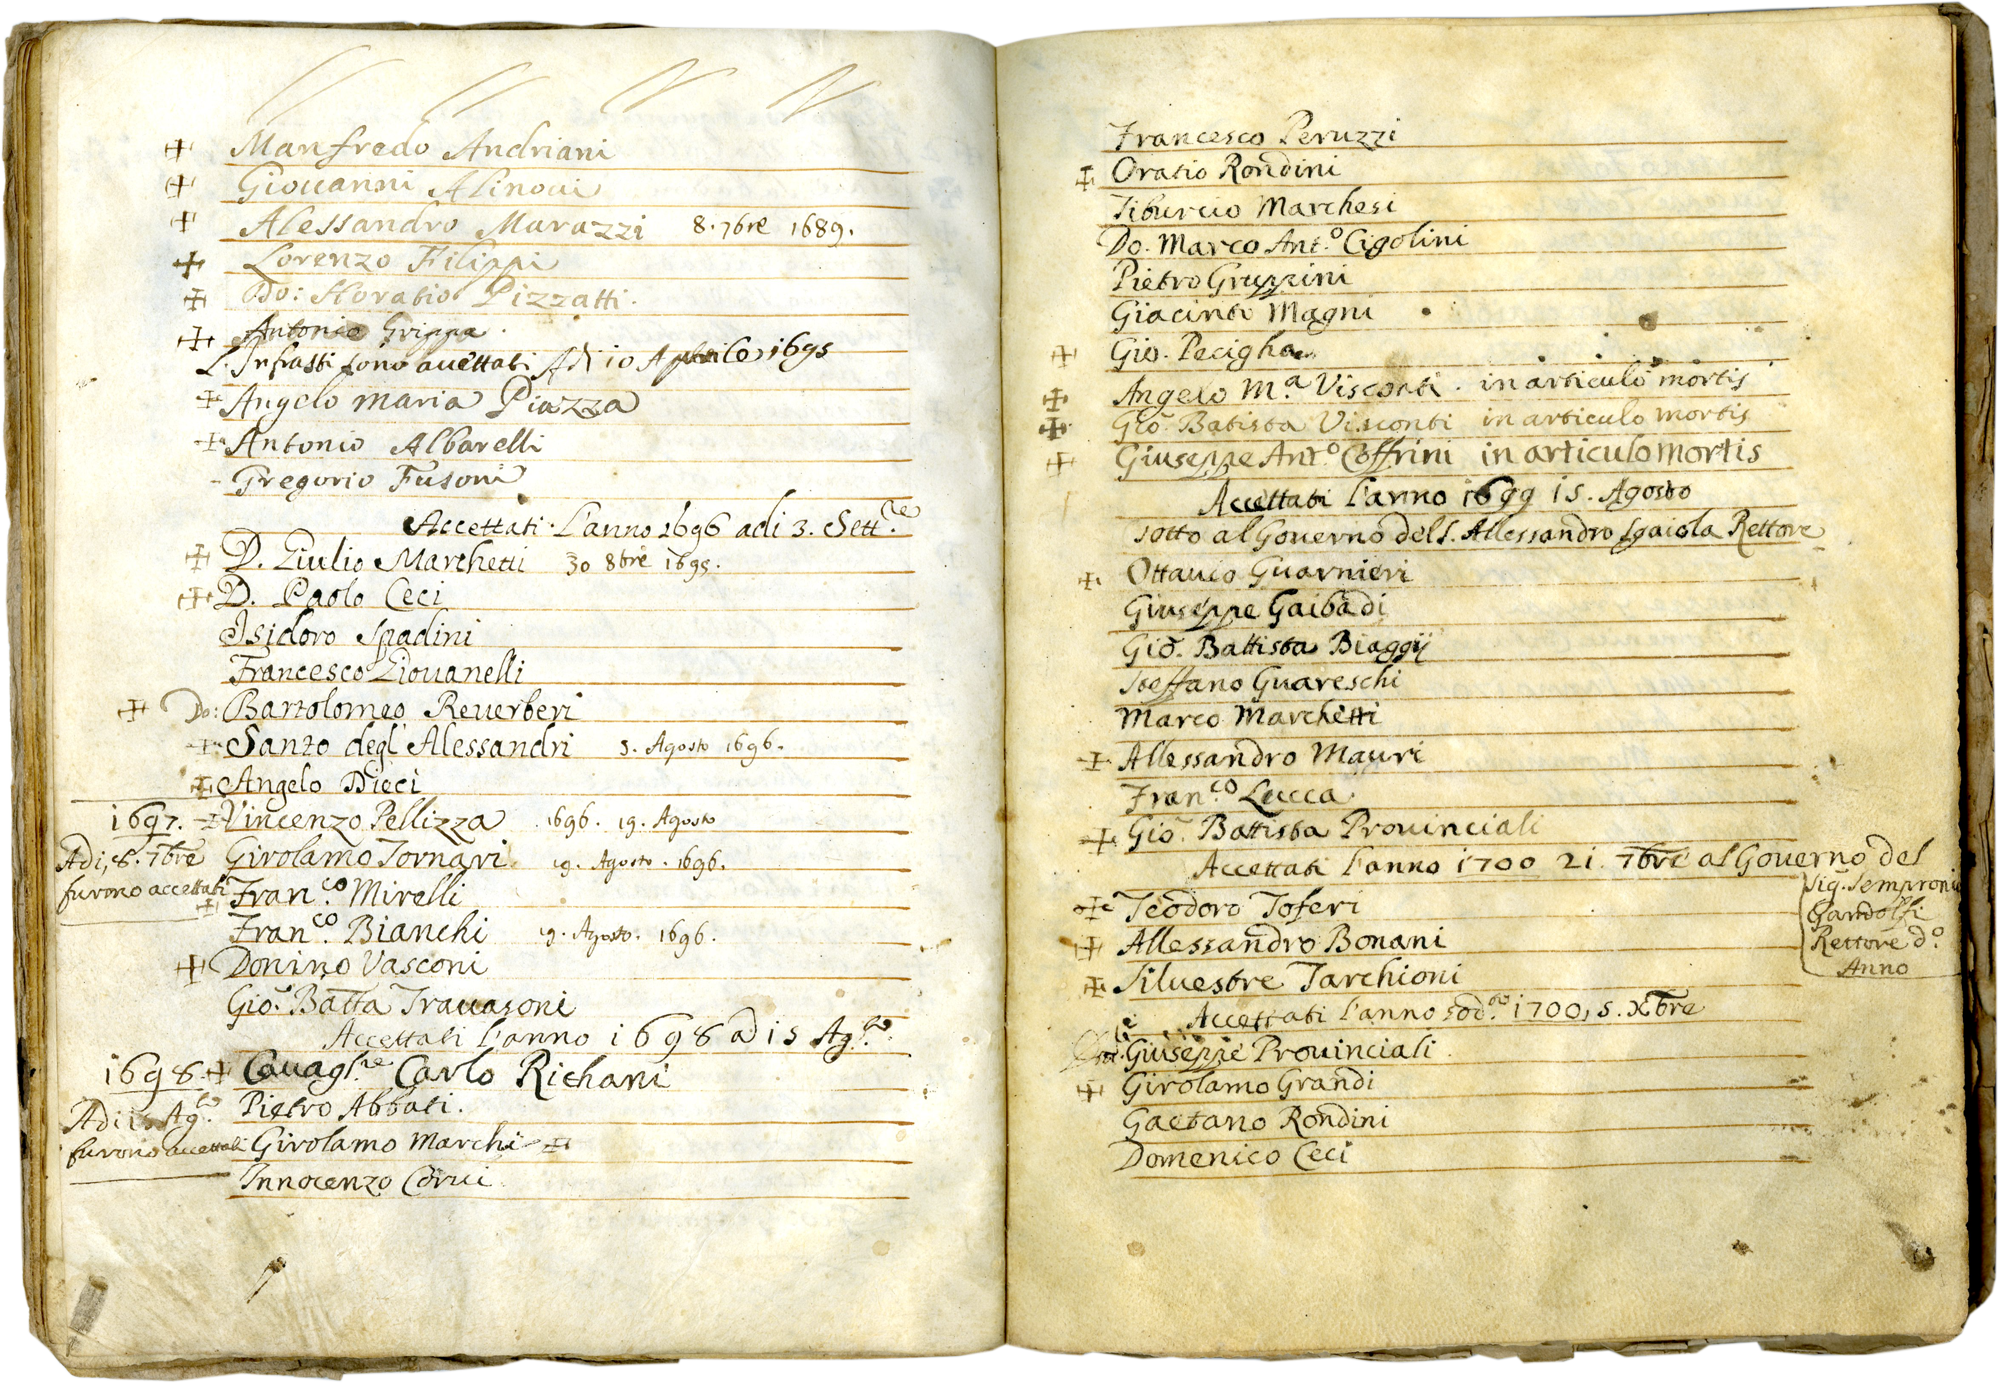 Manfredo Andriani
Giouanni Alinoui
Alessandro Marazzi 8. 7bre 1689.
Lorenzo Filippi
Do: Horatio Pizzatti.
Antonio Grippa
L'Infratti sono accettati Adi 10 Aprile 1695
Angelo Maria Piazza
Antonio Albarelli
Gregorio Fusoni
Accettati L'anno 1696 adi 3. Sett.re
D. Giulio Marchetti 30 8bre 1695.
D. Paolo Ceci
Isidoro Spadini
Francesco Giouanelli
Do: Bartolomeo Reuerberi
Santo degl' Alessandri 5. Agosto 1696.
Angelo Dieci
1697. Vincenzo Pellizza 1696. 19. Agosto
Adi, 8. 7bre Girolamo Tornari 19. Agosto. 1696.
furono accettati Fran.co Mirelli
Fran.co Bianchi 19. Agosto. 1696.
Donino Vasconi
Gio: Batta Trauasoni
Accettati L'anno 1698 a di 15 Ag.to
1698. Cauagl.re Carlo Richani
Adi 15 Ag.to Pietro Abbati.
furono accettati Girolamo Marchi
Innocenzo Corui
Francesco Peruzzi
Oratio Rondini
Tiburcio Marchesi
Do. Marco Ant.o Cigolini
Pietro Gruppini
Giacinto Magni
Gio. Pecigha
Angelo M.a Visconti. in articulo mortis
Gio. Batista Visconti in articulo mortis
Giuseppe Ant.o Coffrini in articulo mortis
Accettati L'anno 1699 15. Agosto
sotto al Gouerno del S. Allessandro Sgaiola Rettore
Ottauio Guarnieri
Giuseppe Gaibadi
Gio. Battista Biaggij
Steffano Guareschi
Marco Marchetti
Allessandro Mauri
Fran.co Lucca.
Gio. Battista Prouinciali
Accettati L'anno 1700 21. 7bre al Gouerno del
Sig. Sempronio
Gandolfi
Rettore d.o
Anno
Teodoro Toferi
Allessandro Bonani
Siluestre Tarchioni
Accettati L'anno sod.o 1700, 5. Xbre
Giuseppe Prouinciali
Girolamo Grandi
Gaetano Rondini
Domenico Ceci